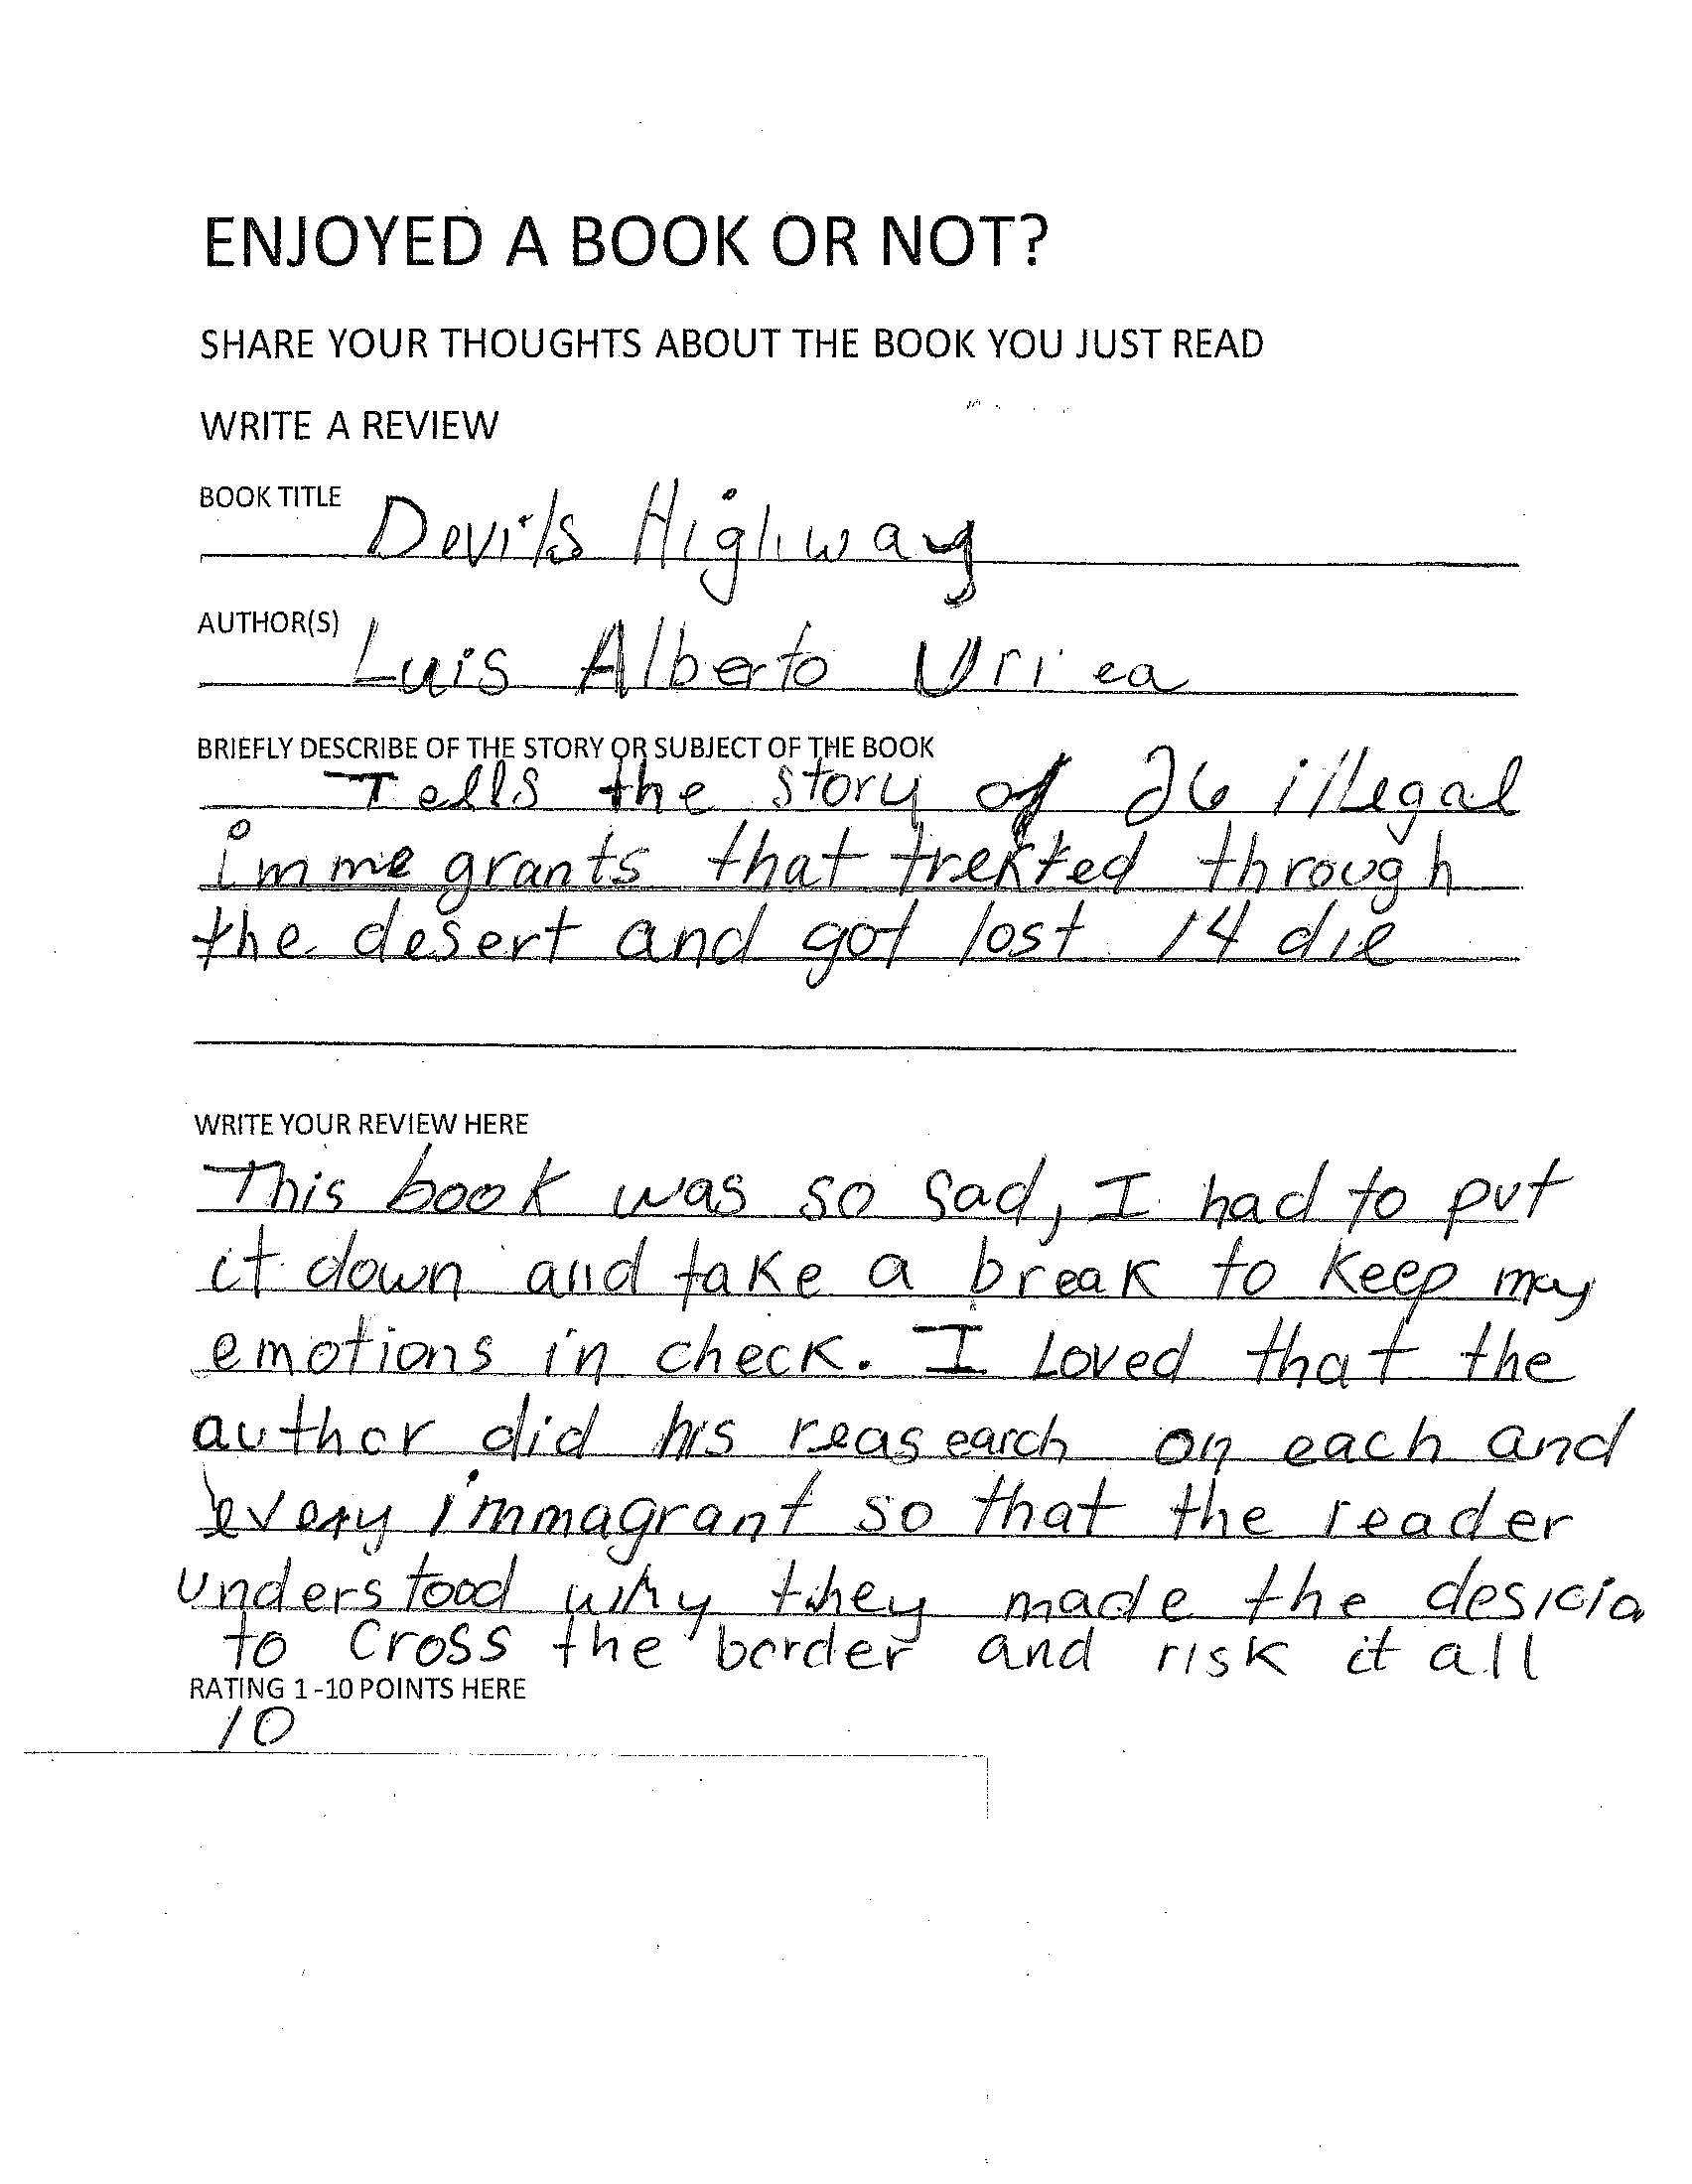 ENJOYED A BOOK OR NOT?
SHARE YOUR THOUGHTS ABOUT THE BOOK YOU JUST READ
WRITE A REVIEW
BOOK TITLE Devils Highway
AUTHOR(S) Luis Alberto Urrea
BRIEFLY DESCRIBE OF THE STORY OR SUBJECT OF THE BOOK
Tells the story of 26 illegal
immegrants that trekted through
the desert and got lost 14 die
WRITE YOUR REVIEW HERE
This book was so sad, I had to put
it down and take a break to keep my
emotions in check. I Loved that the
author did his reasearch on each and
every immagrant so that the reader
understood why they made the desicia
to cross the border and risk it all
RATING 1-10 POINTS HERE
10